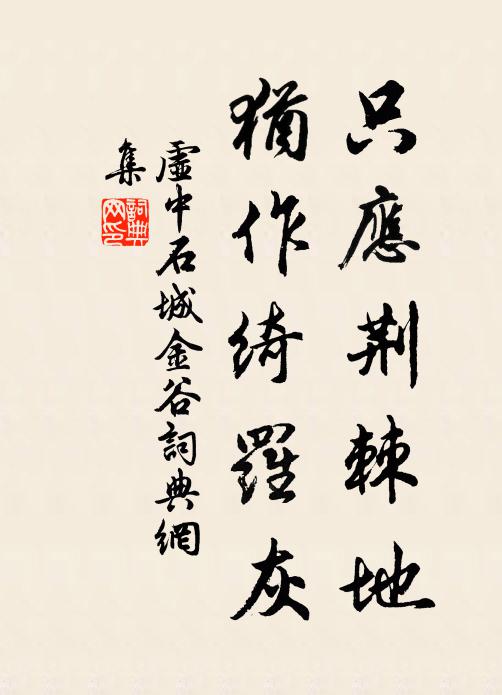 只應荆棘地
猶作綺羅灰
虛中石城金谷詞典網
集
詞典網印